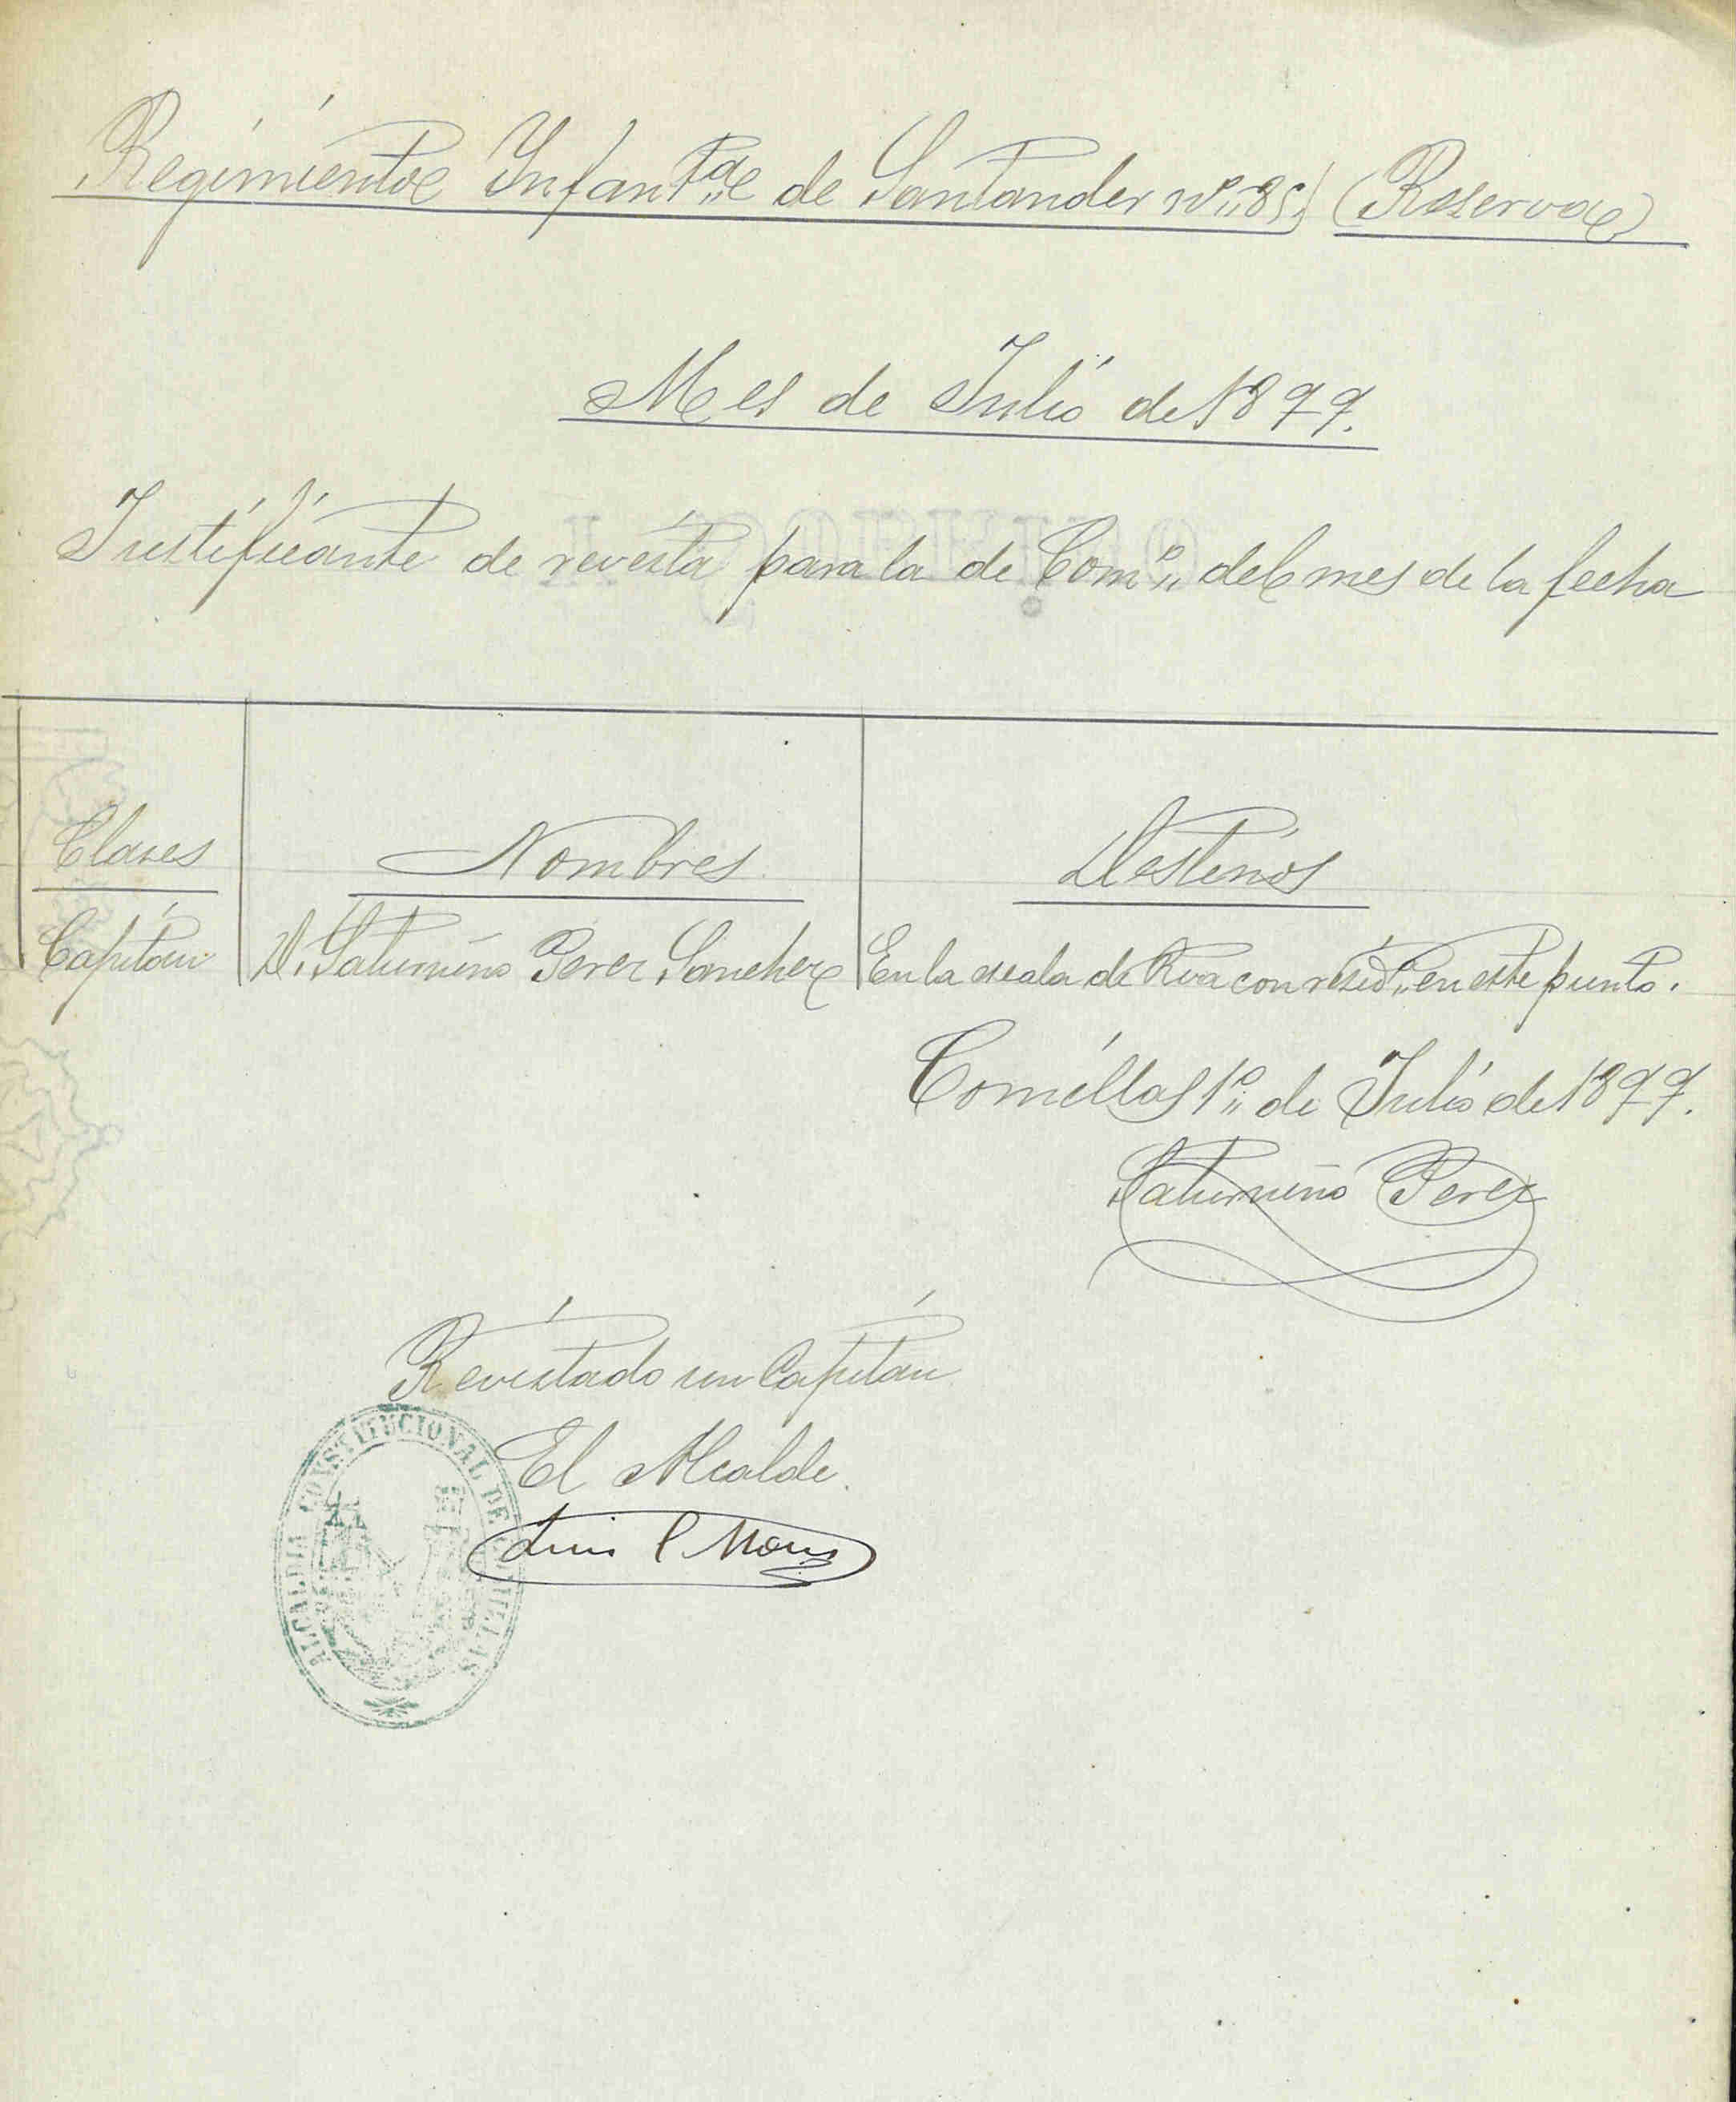 Regimiento Infantª de Santander nº 85 (Reserva)
Mes de Julio de 1899.
Justificante de revista para la de Comº del mes de la fecha
Clases Nombres Destinos
Capitán D. Saturnino Perez Sanchez En la escala de Rva con residª en este punto.
Comillas 1º de Julio de 1899.
Saturnino Perez
Revistado un Capitán
El Alcalde.
Luis
ALCALDIA CONSTITUCIONAL DE COMILLAS